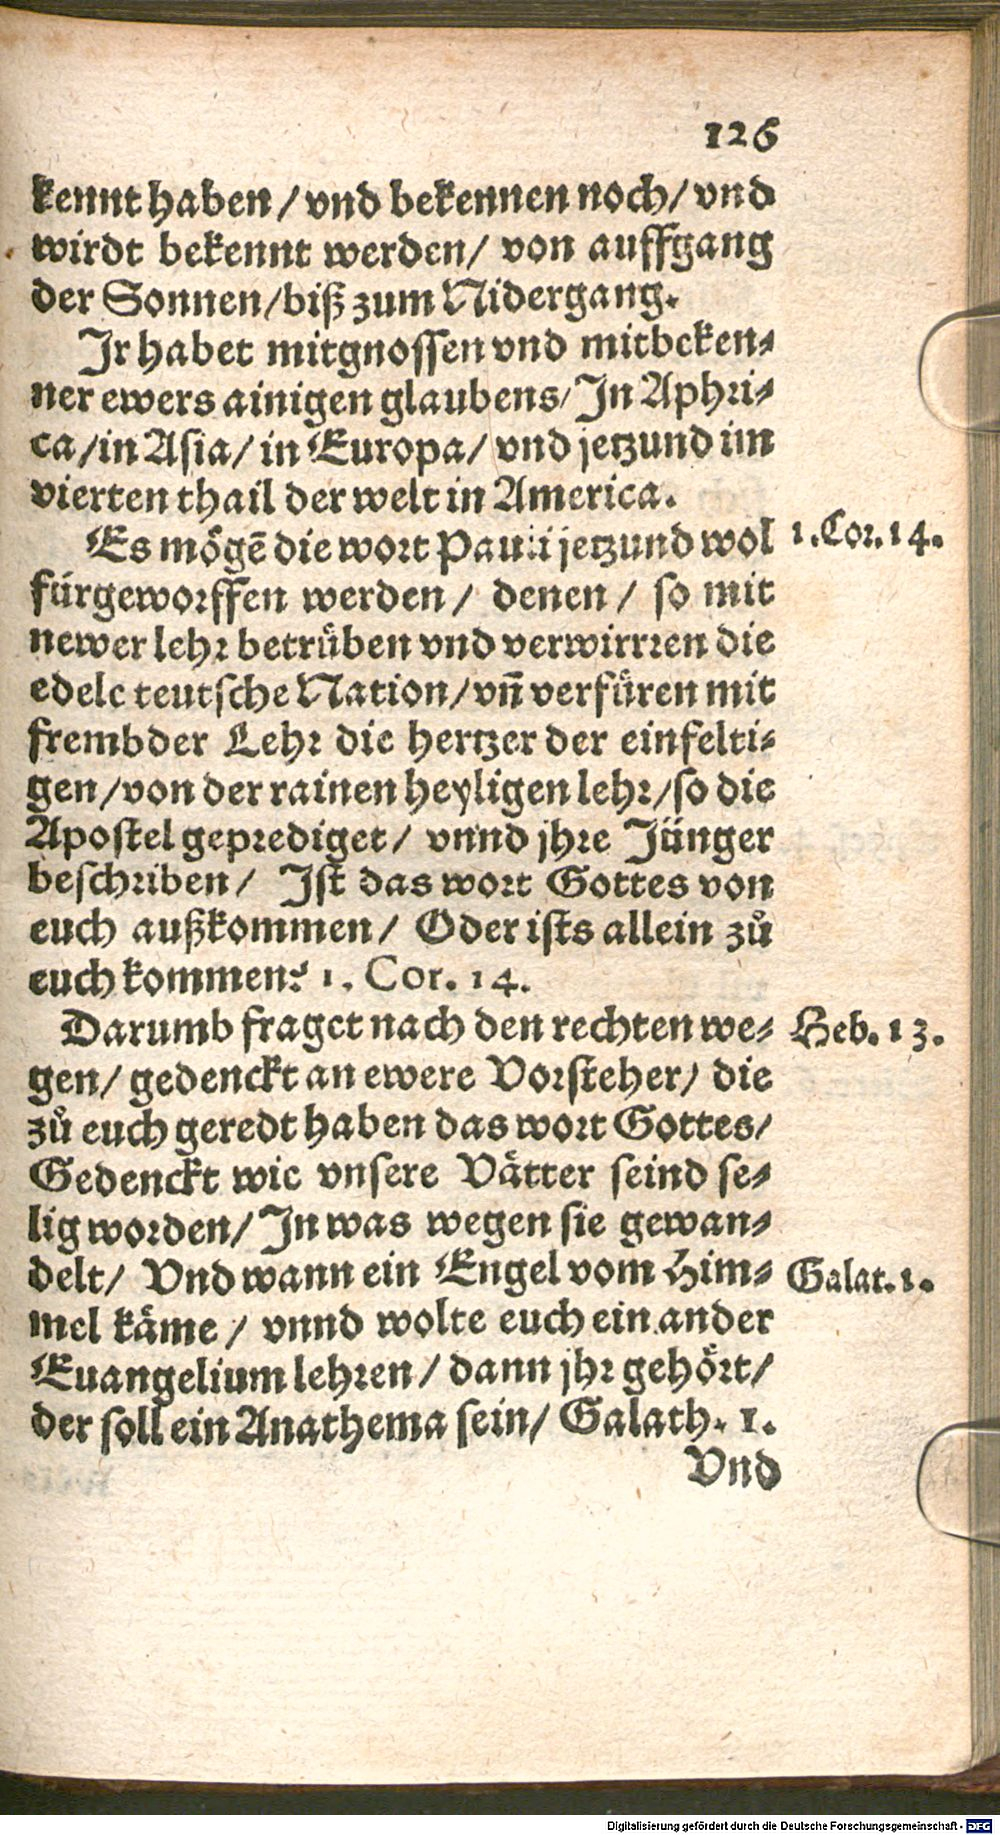 126
kennt haben / vnd bekennen noch / vnd
wirdt bekennt werden / von auffgang
der Sonnen / biß zum Nidergang.
Ir habet mitgnossen vnd mitbeken-
ner ewers ainigen glaubens / In Aphri-
ca / in Asia / in Europa / vnd jetzund im
vierten thail der welt in America.
Es mögē die wort Pauli jetzund wol 1. Cor. 14.
fürgeworffen werden / denen / so mit
newer lehr betrüben vnd verwirrren die
edele teutsche Nation / vn̄ verfüren mit
frembder Lehr die hertzer der einfelti-
gen / von der rainen heyligen lehr / so die
Apostel geprediget / vnnd jhre Jünger
beschriben / Ist das wort Gottes von
euch außkommen / Oder ists allein zů
euch kommen? 1. Cor. 14.
Darumb fraget nach den rechten we- Heb. 13.
gen / gedenckt an ewere Vorsteher / die
zů euch geredt haben das wort Gottes /
Gedenckt wie vnsere Vätter seind se-
lig worden / In was wegen sie gewan-
delt / Vnd wann ein Engel vom Him- Galat. 1.
mel käme / vnnd wolte euch ein ander
Euangelium lehren / dann jhr gehört /
der soll ein Anathema sein / Galath. 1.
Vnd
Digitalisierung gefördert durch die Deutsche Forschungsgemeinschaft - DFG